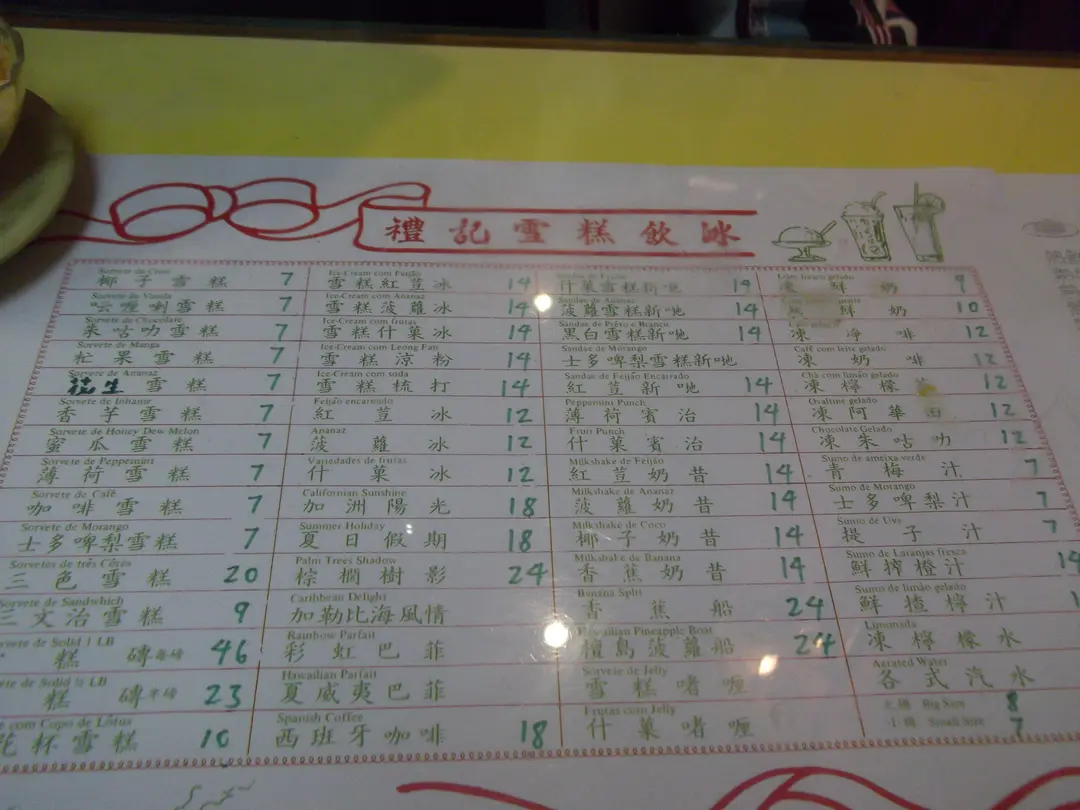 禮記雪糕飲冰
Sorvete de Coco
椰子雪糕 7
Sorvete de Vanila
呍喱喇雪糕 7
Sorvete de Chocolate
朱咕叻雪糕 7
Sorvete de Manga
杧果雪糕 7
Sorvete de Ananaz
花生雪糕 7
Sorvete de Inhame
香芋雪糕 7
Sorvete de Honey Dew Melon
蜜瓜雪糕 7
Sorvete de Peppemint
薄荷雪糕 7
Sorvete de Café
咖啡雪糕 7
Sorvete de Morango
士多啤梨雪糕 7
Sorvetes de três Côres
三色雪糕 20
Sorvete de Sandwhich
三文治雪糕 9
de Solid 1 LB
糕磚每磅 46
de Solid ½ LB
糕磚半磅 23
com Copo de Lótus
花杯雪糕 10
Ice-Cream com Feijão
雪糕紅荳冰 14
Ice-Cream com Ananaz
雪糕菠蘿冰 14
Ice-Cream com frutas
雪糕什菓冰 14
Ice-Cream com Leong Fan
雪糕涼粉 14
Ice-Cream com soda
雪糕梳打 14
Feijão encarnado
紅荳冰 12
Ananaz
菠蘿冰 12
Variedades de frutas
什菓冰 12
Californian Sunshine
加洲陽光 18
Summer Holiday
夏日假期 18
Palm Trees Shadow
棕櫚樹影 24
Caribbean Delight
加勒比海風情
Rainbow Parfait
彩虹巴菲
Hawaiian Parfait
夏威夷巴菲
Spanish Coffee
西班牙咖啡 18
什菓雪糕新地 14
Sandas de Ananaz
菠蘿雪糕新地 14
Sandas de Prêto e Branco
黑白雪糕新地 14
Sandae de Morango
士多啤梨雪糕新地
Sandas de Feijão Encarnado
紅荳新地 14
Peppemint Punch
薄荷賓治 14
Fruit Punch
什菓賓治 14
Milkshake de Feijão
紅荳奶昔 14
Milkshake de Ananaz
菠蘿奶昔 14
Milkshake de Coco
椰子奶昔 14
Milkshake de Banana
香蕉奶昔 14
Banana Split
香蕉船 24
Hawaiian Pineapple Boat
檀島菠蘿船 24
Sorvete de Jelly
雪糕啫喱
Frutas com Jelly
什菓啫喱
Leite fresco gelado
凍鮮奶 9
鮮奶 10
凍淨啡 12
Café com leite gelado
凍奶啡 12
Chá com limão gelado
凍檸檬 12
Ovaltine gelado
凍阿華田 12
Chocolate Gelado
凍朱咕叻 12
Sumo de ameixa verde
青梅汁 7
Sumo de Morango
士多啤梨汁 7
Sumo de Uva
提子汁 7
Sumo de Laranjas fresca
鮮搾橙汁 14
Sumo de limão gelado
鮮揸檸汁
Limonada
凍檸檬水
Aerated Water
各式汽水
大樽 Big Size 8
Small Size 7